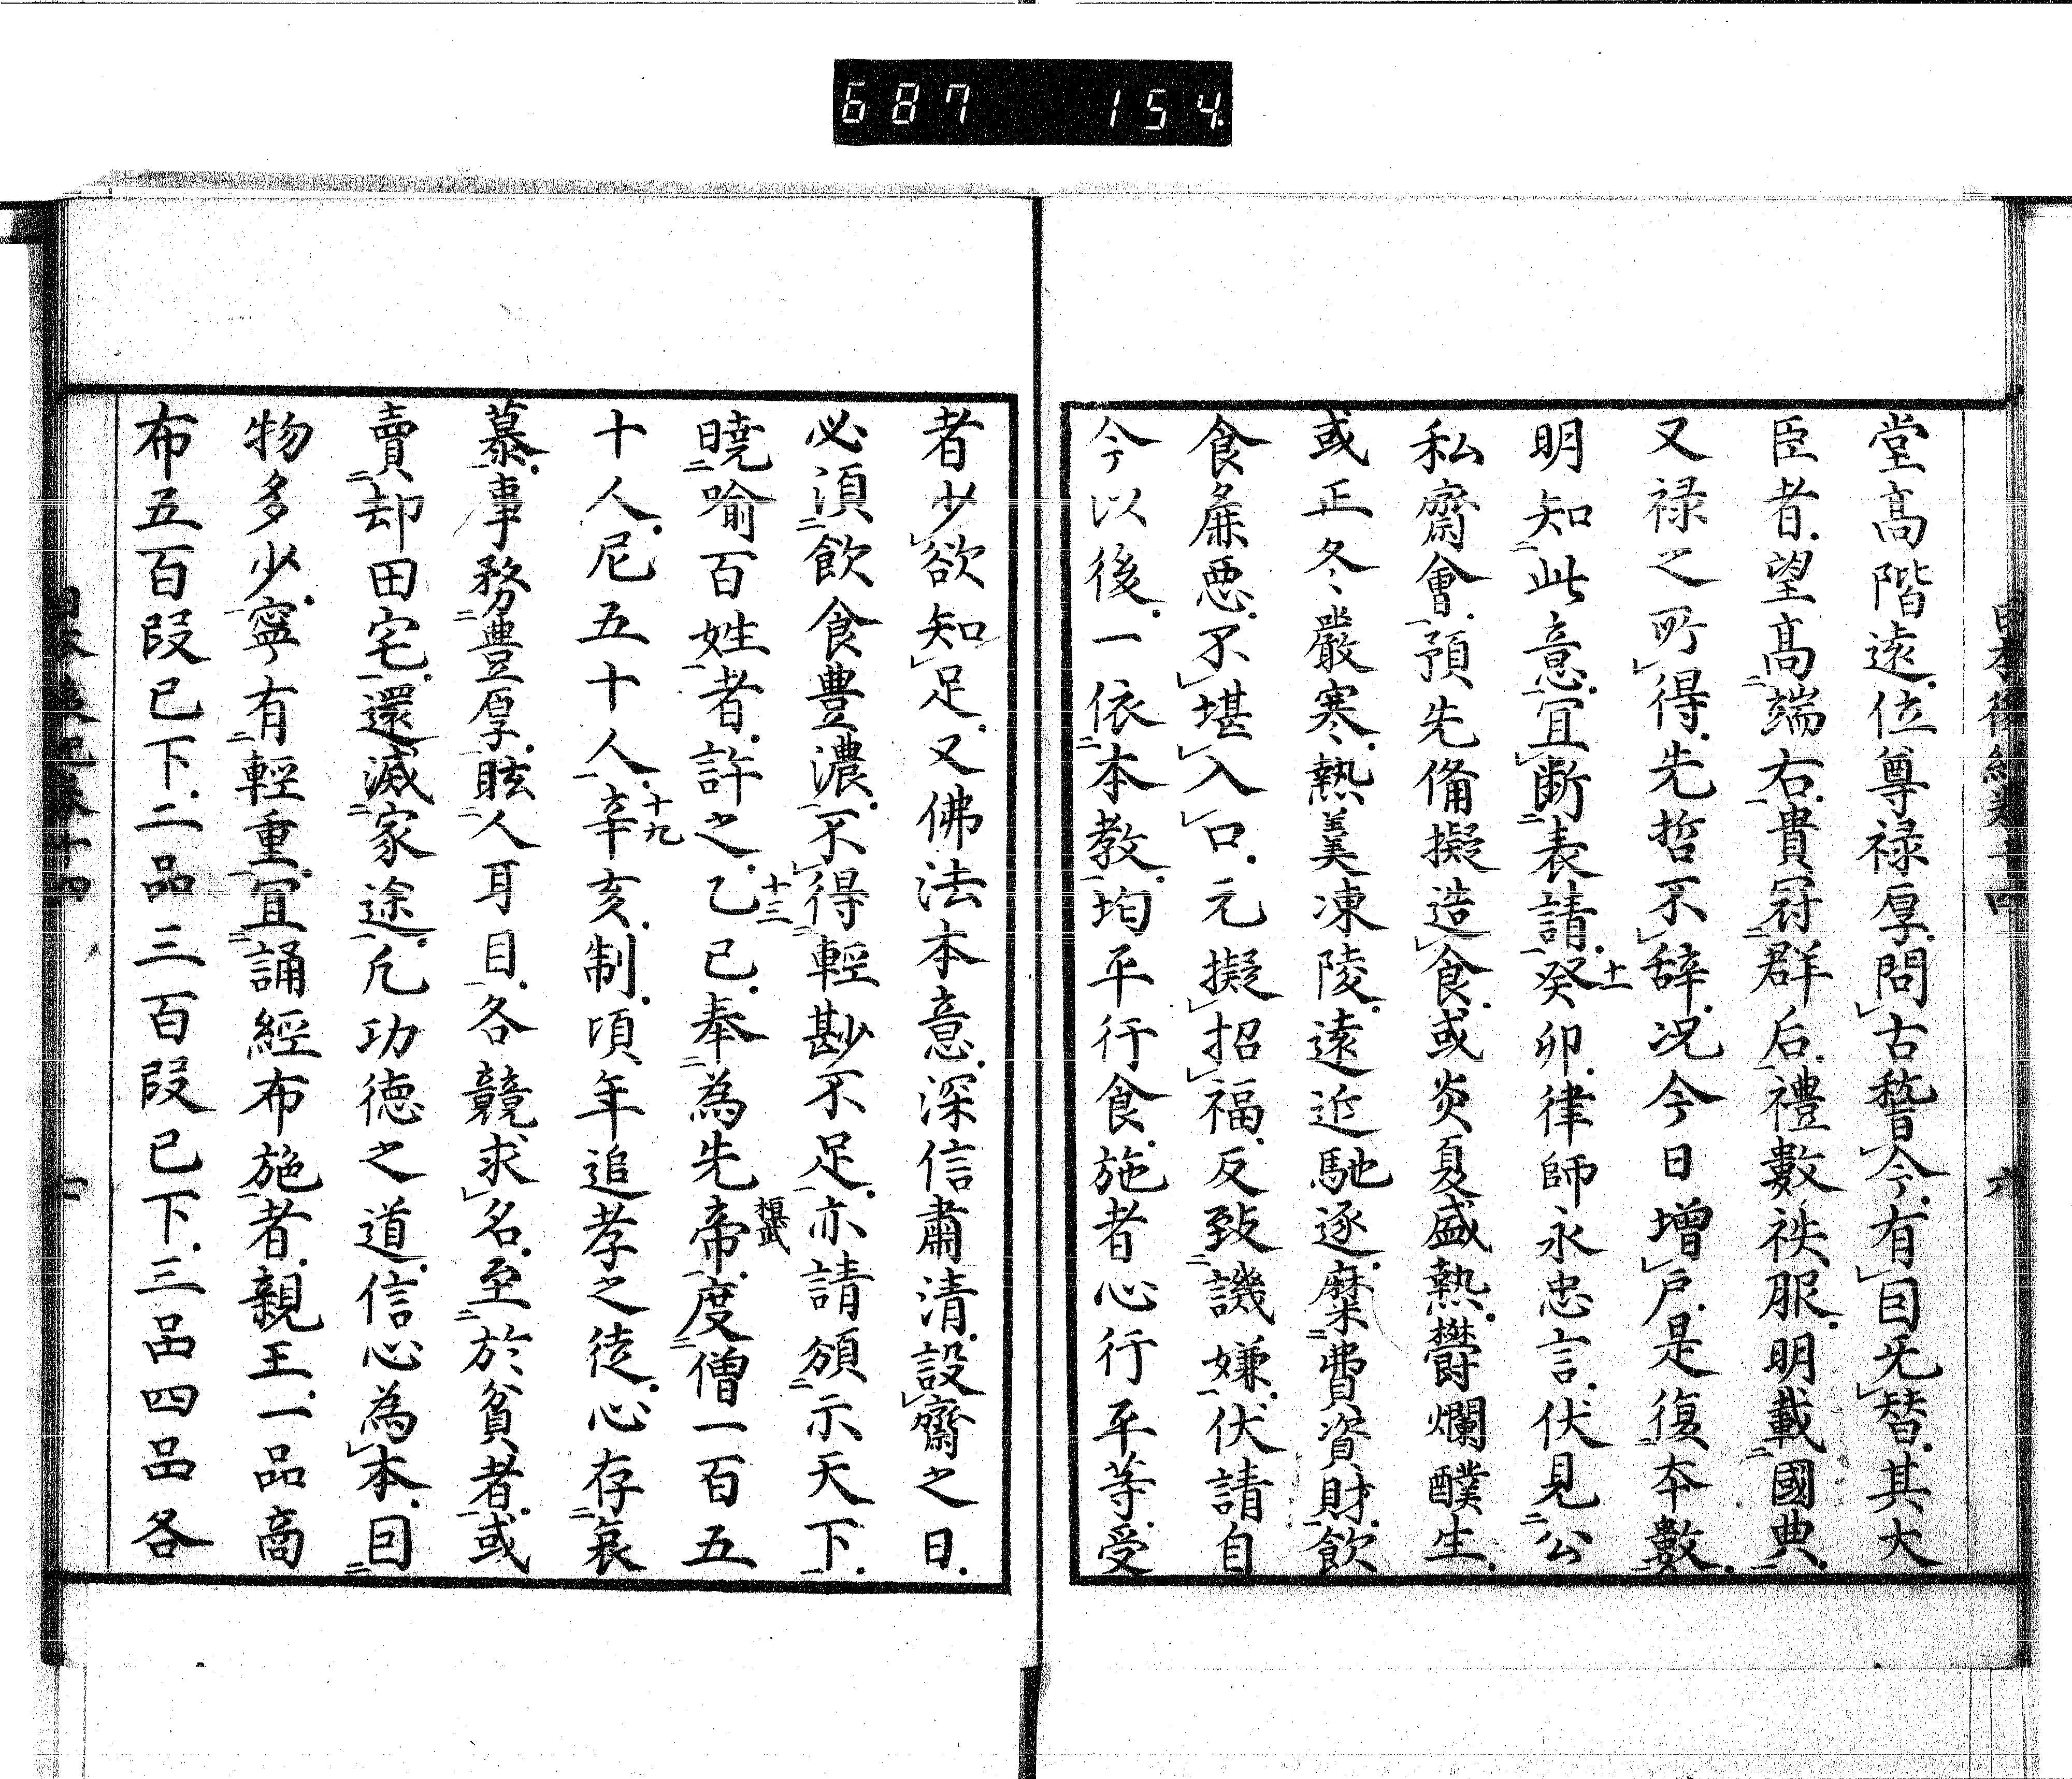 687 154
堂高階遠位尊禄厚問古稽今有因旡替其大
臣者望高端右貴冠群后禮數袟服明載國典
又禄之所得先哲不辞況今日增戸是復本數
明知此意宜断表請癸卯律師永忠言伏見公
十一
私齋會預先俻擬造食或炎夏盛熱欝爛醭生
或正冬嚴寒熱羹凍陵遠近馳逐糜費資財飲
食麁悪不堪入口元擬招福反致譏嫌伏請自
今以後一依本教均平行食施者心行平等受
者少欲知足又佛法本意深信肅清設齋之日
必須飲食豊濃不得輕尠不足亦請頒示天下
曉喻百姓者許之乙巳奉為先帝度僧一百五
十三
桓武
十人尼五十人辛亥制頃年追孝之徒心存哀
十九
慕事務豊厚眩人耳目各競求名至於貧者或
賣却田宅還滅家途凢功徳之道信心為本因
物多少寧有輕重宜誦經布施者親王一品商
布五百段已下二品三百段已下三品四品各